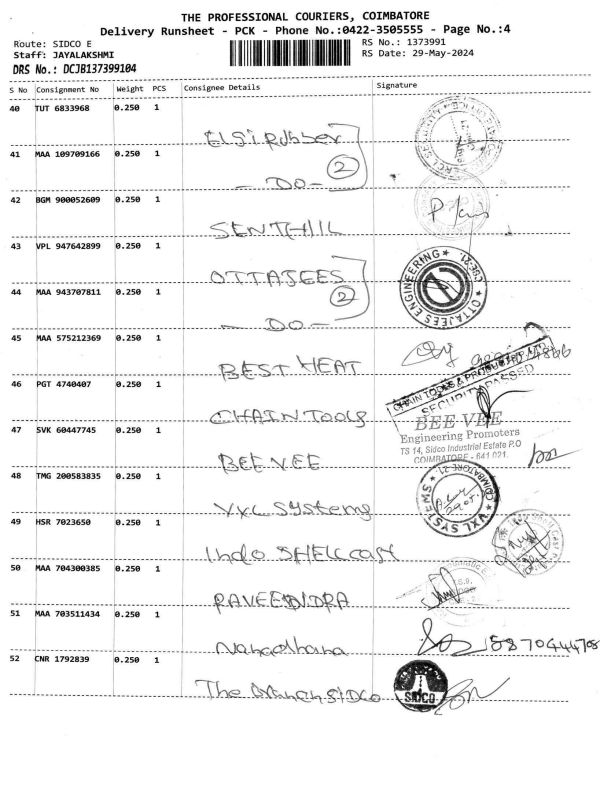 THE PROFESSIONAL COURIERS, COIMBATORE
Delivery Runsheet - PCK - Phone No.:0422-3505555 - Page No.:4
Route: SIDCO E
RS No.: 1373991
Staff: JAYALAKSHMI
RS Date: 29-May-2024
DRS No.: DCJB137399104
S No Consignment No Weight PCS Consignee Details Signature
40 TUT 6833968 0.250 1
ELGi Rubber
41 MAA 109709166 0.250 1
2
- DO -
42 BGM 900052609 0.250 1
SENTHIL
43 VPL 947642899 0.250 1
OTTAJEES
OTTAJEES ENGINEERING * CBE-21 *
44 MAA 943707811 0.250 1
2
- DO -
45 MAA 575212369 0.250 1
BEST HEAT
46 PGT 4740407 0.250 1
CHAIN TOOLS
CHAIN TOOLS &
SECURITY PASSED
47 SVK 60447745 0.250 1
BEE VEE
BEE VEE
Engineering Promoters
TS 14, Sidco Industrial Estate P.O
COIMBATORE - 641 021.
48 TMG 200583835 0.250 1
VXL Systems
* VXL SYSTEMS * COIMBATORE-21
49 HSR 7023650 0.250 1
Indo SHELL cast
50 MAA 704300385 1 0.250
RAVEENDRA
51 MAA 703511434 0.250 1
52 CNR 1792839 0.250 1
The
SIDCO